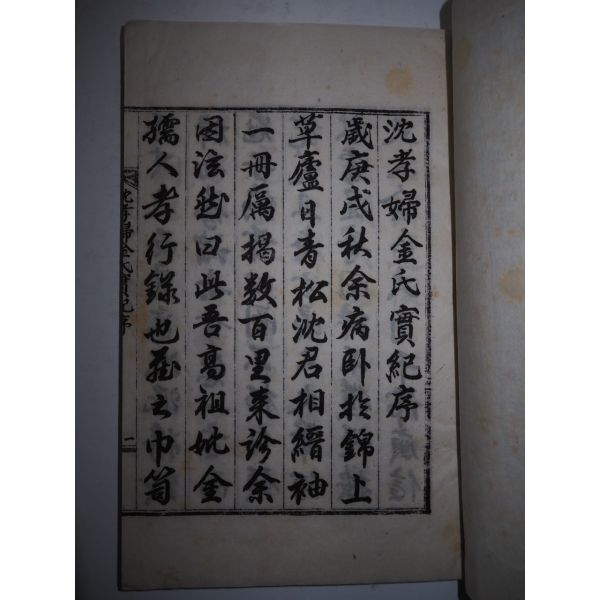 沈孝婦金氏實紀序
歲庚戌秋余病臥於錦上
草廬日青松沈君相縉袖
一冊厲揭數百里來診余
因泫然曰此吾高祖妣金
孺人孝行錄也藏之巾笥
沈孝婦金氏實紀序
一